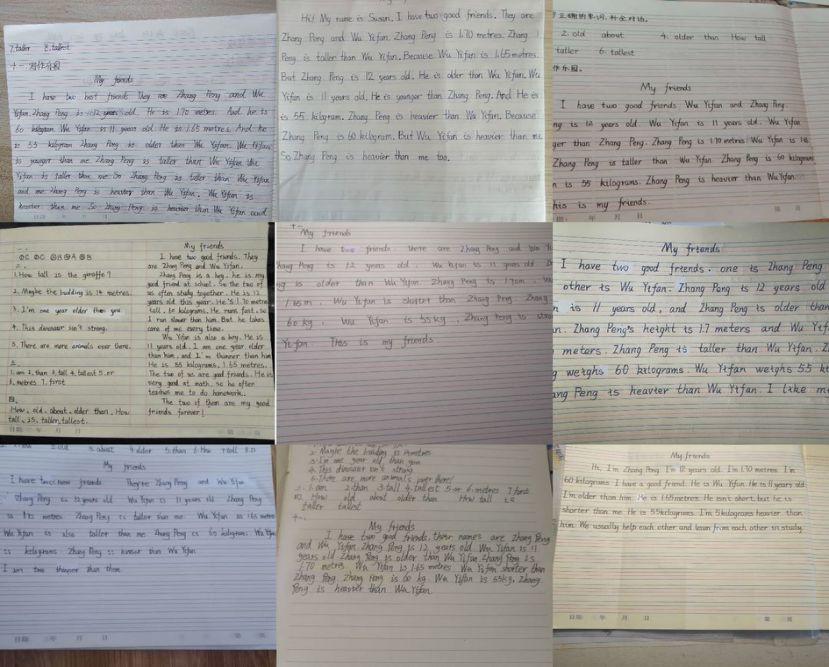 7.taller 8.tallest
十一.写作乐园
My friends
I have two best friends They are Zhang Peng and Wu
Yifan. Zhang Peng is 12 years old. He is 1.70 metres. And he is
60 kilogram Wu Yifan is 11 years old. He is 1.65 metres. And he
is 55 kilogram Zhang Peng is older than Wu Yifan. Wu Yifan
is younger than me Zhang Peng is taller than Wu Yifan Wu
Yifan is taller than me So Zhang Peng is taller than Wu Yifan
and me Zhang Peng is heavier than Wu Yifan. Wu Yifan is
heavier than me So Zhang Peng is heavier than Wu Yifan and
Hi! My name is Susan. I have two good friends. They are
Zhang Peng and Wu Yifan. Zhang Peng is 1.70 metres. Zhang
Peng is taller than Wu Yifan. Because Wu Yifan is 1.65 metres.
But Zhang Peng is 12 years old. He is older than Wu Yifan. Wu
Yifan is 11 years old. He is younger than Zhang Peng. And He is
is 55 kilogram. Zhang Peng is heavier than Wu Yifan. Because
Zhang Peng is 60 kilogram. But Wu Yifan is heavier than me
So Zhang Peng is heavier than me too.
正确的单词,补全对话.
2. old about 4. older than How tall
taller 6. tallest
作乐园.
My friends
I have two good friends Wu Yifan and Zhang
ng is 12 years old. Wu Yifan is 11 years old. Wu Yifan
ger than Zhang Peng. Zhang Peng is 1.70 metres Wu Yifan is 1.6
Zhang Peng is taller than Wu Yifan Zhang Peng is 60 kilogram
n is 55 kilograms. Zhang Peng is heavier than Wu Yifan.
his is my friends.
二.
1. How tall is the giraffe?
2. Maybe the building is 14 metres.
3. I'm one year older than you
4. This dinosaur isn't strong.
5. There are more animals over there.
三.
1. am 2. than 3. tall 4. tallest 5. or
6. metres 7. first
四.
How, old, about, older than, How
tall, is, taller, tallest.
My friends
I have two good friends. They
are Zhang Peng and Wu Yifan.
Zhang Peng is a boy. he is my
good friend at school. So the two of
us often study together. He is 12
years old this year. He's 1.70 metres
tall. 60 kilograms. He runs fast. so
I run slower than him. But he takes
care of me every time.
Wu Yifan is also a boy. He is
11 years old. I am one year older
than him, and I'm thinner than him
He is 55 kilograms, 1.65 metres.
The two of us are good friends. He is
very good at math, so he often
teaches me to do homework.
The two of them are my good
friends forever!
My friends
I have two friends. There are Zhang Peng and Wu Yi
Zhang Peng is 12 years old. Wu Yifan is 11 years old
ng is older than Wu Yifan. Zhang Peng is 1.70m. Wu
1.65m. Wu Yifan is shorter than Zhang Peng Zhang
60kg. Wu Yifan is 55kg. Zhang Peng is
Yifan. This is my friends
My friends
I have two good friends. one is Zhang Peng
other is Wu Yifan. Zhang Peng is 12 years old
n is 11 years old, and Zhang Peng is older than
n. Zhang Peng's height is 1.7 meters and Wu Yif
meters. Zhang Peng is taller than Wu Yifan. Z
g weighs 60 kilograms. Wu Yifan weighs 55 ki
ang Peng is heavier than Wu Yifan. I like m
My friends
I have two friends They're Zhang Peng and Wu Yifan
Zhang Peng is 12 years old Wu Yifan is 11 years old Zhang Peng
is metres Zhang Peng is taller than me. Wu Yifan is 1.65 metres
Wu Yifan is also taller than me Zhang Peng is 60 kilograms. Wu Yifan
is kilograms Zhang Peng is than Wu Yifan
I am two thinner than them
日期: 年 月 日
2. Maybe the building is metres
3. I'm one year old than you
4. This dinosaur isn't strong
5. There are more animals over there!
1. am 2. than 3. tall 4. tallest 5. or 6. metres 7. first
How old about older than How tall is
taller tallest
十一.
My friends
I have two good friends, their names are Zhang Peng
and Wu Yifan. Zhang Peng is 12 years old. Wu Yifan is 11
years old Zhang Peng is older than Wu Yifan. Zhang Peng is
1.70 metres. Wu Yifan is 1.65 metres Wu Yifan shorter than
Zhang Peng Zhang Peng is 60 kg. Wu Yifan is 55kg, Zhang
Peng is heavier than Wu Yifan.
My friends
Hi, I'm Zhang Peng I'm 12 years old. I'm 1.70 metres I'm
60 kilograms I have a good friend. He is Wu Yifan. He is 11 years old
I'm older than him. He is 1.65 metres He isn't short, but he is
shorter than me. He is 55 kilograms. I'm 5 kilograms heavier than
him. We usually help each other and learn from each other in study.
日期: 年 月 日